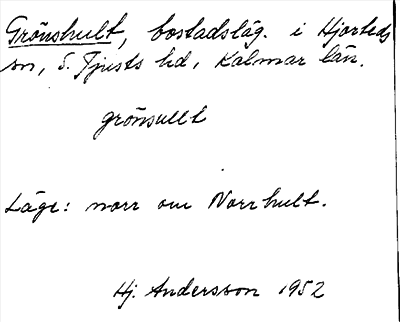 Grönshult, bostadsläg. i Hjorteds
sn, S. Tjusts hd, Kalmar län.
grönsullt
Läge: norr om Norrhult.
Hj. Andersson 1952